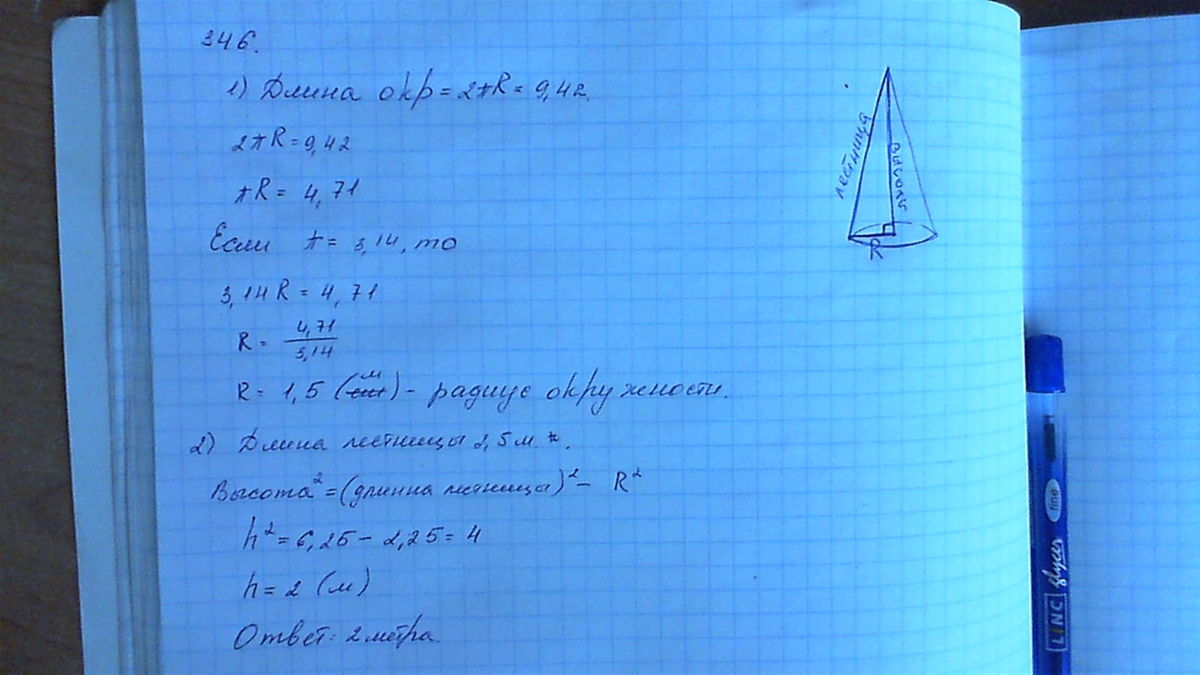 346.
1) Длина окр = 2πR = 9,42.
2πR = 9,42
πR = 4,71
Если π = 3,14, то
3,14 R = 4,71
R = 4,71/3,14
R = 1,5 (м) - радиус окружности.
2) Длина лестницы 2,5 м.
Высота² = (длинна лестницы)² - R²
h² = 6,25 - 2,25 = 4
h = 2 (м)
Ответ: 2 метра.
лестница
высота
R
LINC glycer fine